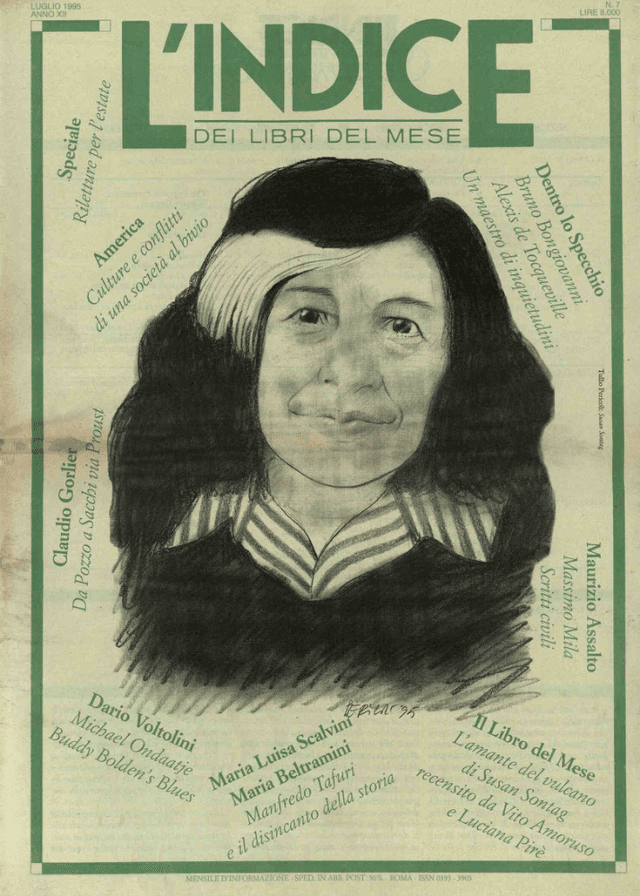 LUGLIO 1995
ANNO XII
N. 7
LIRE 8.000
L'INDICE
DEI LIBRI DEL MESE
Speciale
Riletture per l'estate
America
Culture e conflitti
di una società al bivio
Dentro lo Specchio
Bruno Bongiovanni
Alexis de Tocqueville
Un maestro di inquietudini
Tullio Pericoli: Susan Sontag
Claudio Gorlier
Da Pozzo a Sacchi via Proust
Maurizio Assalto
Massimo Mila
Scritti civili
PERICOLI '95
Dario Voltolini
Michael Ondaatje
Buddy Bolden's Blues
Maria Luisa Scalvini
Maria Beltramini
Manfredo Tafuri
e il disincanto della storia
Il Libro del Mese
L'amante del vulcano
di Susan Sontag
recensito da Vito Amoruso
e Luciana Pirè
MENSILE D'INFORMAZIONE - SPED. IN ABB. POST. 50% - ROMA - ISSN 0393 - 3903